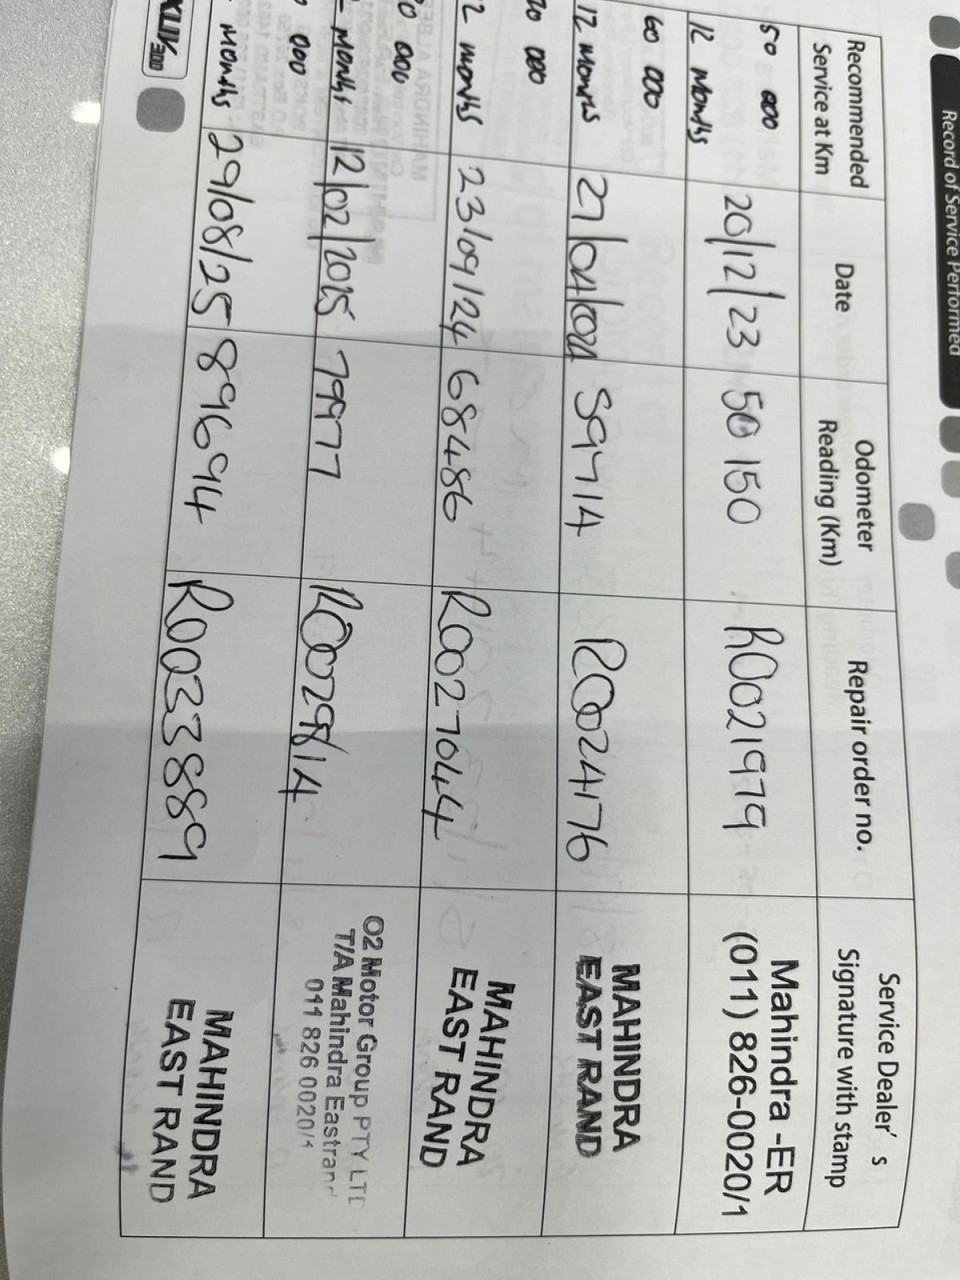 Record of Service Performed
Recommended Service at Km
Date
Odometer Reading (Km)
Repair order no.
Service Dealer's Signature with stamp
50 000
12 Months
20/12/23
50 150
R0021979
Mahindra -ER
(011) 826-0020/1
60 000
12 Months
27/04/024
59714
R0024176
MAHINDRA
EAST RAND
70 000
2 months
23/09/24
68486
R0027044
MAHINDRA
EAST RAND
0 000
months
12/02/2025
79977
R0029814
O2 Motor Group PTY LTD
T/A Mahindra Eastrand
011 826 0020/1
000
months
29/08/25
89694
R0033889
MAHINDRA
EAST RAND